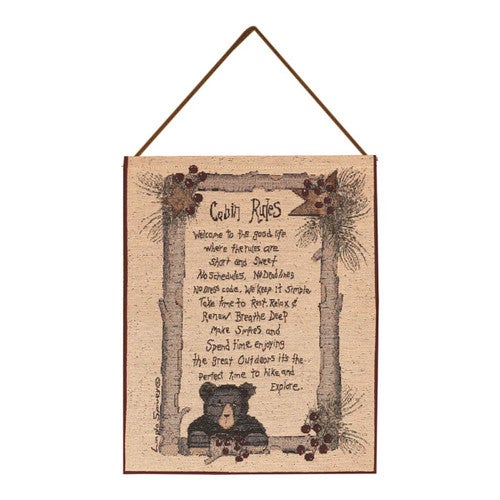 Cabin Rules
Welcome to the good life
where the rules are
short and sweet
No Schedules, No Deadlines
No dress code, We keep it simple
Take time to Rest, Relax &
Renew Breathe Deep
Make S'mores and
Spend time enjoying
the great Outdoors it's the
perfect time to hike and
Explore.
©
Linda Spivey